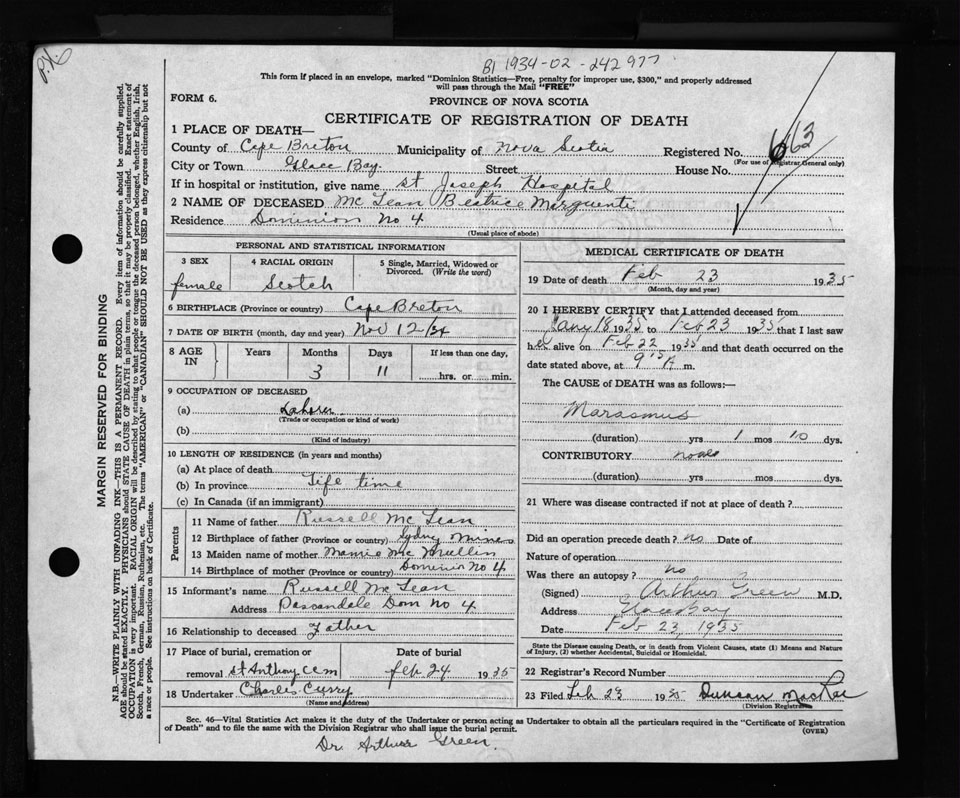 P.X.
B1 1934-02-242977
This form if placed in an envelope, marked "Dominion Statistics—Free, penalty for improper use, $300," and properly addressed
will pass through the Mail "FREE"
FORM 6.
PROVINCE OF NOVA SCOTIA
CERTIFICATE OF REGISTRATION OF DEATH
1 PLACE OF DEATH—
County of Cape Breton Municipality of Nova Scotia Registered No. 663
(For use of Registrar General only)
City or Town Glace Bay Street House No.
If in hospital or institution, give name St Joseph Hospital
2 NAME OF DECEASED Mc Lean Beatrice Marguerite
Residence Dominion No 4
(Usual place of abode)
PERSONAL AND STATISTICAL INFORMATION
3 SEX 4 RACIAL ORIGIN 5 Single, Married, Widowed or Divorced. (Write the word)
female Scotch
6 BIRTHPLACE (Province or country) Cape Breton
7 DATE OF BIRTH (month, day and year) Nov 12/34
8 AGE IN Years Months Days If less than one day,
3 11 hrs. or min.
9 OCCUPATION OF DECEASED
(a)
(Trade or occupation or kind of work)
(b)
(Kind of industry)
10 LENGTH OF RESIDENCE (in years and months)
(a) At place of death
(b) In province Life time
(c) In Canada (if an immigrant)
Parents
11 Name of father Russell Mc Lean
12 Birthplace of father (Province or country) Sydney Mines
13 Maiden name of mother Mamie Mc Mullin
14 Birthplace of mother (Province or country) Dominion No 4
15 Informant's name Russell Mc Lean
Address Passandale Dom No 4
16 Relationship to deceased Father
17 Place of burial, cremation or removal St Anthony Cem Date of burial Feb 24 1935
18 Undertaker Charles Curry
(Name and address)
MEDICAL CERTIFICATE OF DEATH
19 Date of death Feb 23 1935
(Month, day and year)
20 I HEREBY CERTIFY that I attended deceased from
Jany 18 1935 to Feb 23 1935 that I last saw
her alive on Feb 22 1935 and that death occurred on the
date stated above, at 9 15 A m.
The CAUSE of DEATH was as follows:—
Marasmus
(duration) yrs 1 mos 10 dys.
CONTRIBUTORY none
(duration) yrs mos dys.
21 Where was disease contracted if not at place of death?
Did an operation precede death? no Date of
Nature of operation
Was there an autopsy? no
(Signed) Arthur Green M.D.
Address Glace Bay
Date Feb 23, 1935
State the Disease causing Death, or in death from Violent Causes, state (1) Means and Nature
of Injury, (2) whether Accidental, Suicidal or Homicidal.
22 Registrar's Record Number
23 Filed Feb 23 1935 Duncan MacRae
(Division Registrar)
Sec. 46—Vital Statistics Act makes it the duty of the Undertaker or person acting as Undertaker to obtain all the particulars required in the "Certificate of Registration
of Death" and to file the same with the Division Registrar who shall issue the burial permit.
(OVER)
Dr Arthur Green.
MARGIN RESERVED FOR BINDING
N.B.—WRITE PLAINLY WITH UNFADING INK—THIS IS A PERMANENT RECORD. Every item of information should be carefully supplied.
AGE should be stated EXACTLY. PHYSICIANS should STATE CAUSE OF DEATH in plain terms, so that it may be properly classified. Exact statement of
OCCUPATION is very important. RACIAL ORIGIN will be described by stating to what people or tongue the deceased person belonged, whether English, Irish,
Scotch, French, German, Russian, Ruthenian, etc. The terms "AMERICAN" or "CANADIAN" SHOULD NOT BE USED as they express citizenship but not
a race or people. See instructions on back of Certificate.